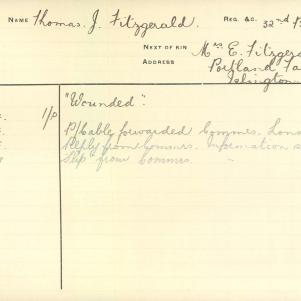 NAME Thomas J. Fitzgerald. REG. &C. 32nd
NEXT OF KIN Mrs E. Fitzgera
ADDRESS Portland
Islington
"Wounded".
1/p P/Cably forwarded Commrs. Lon
Reply from Commrs. Information s
Slip from Commrs. "